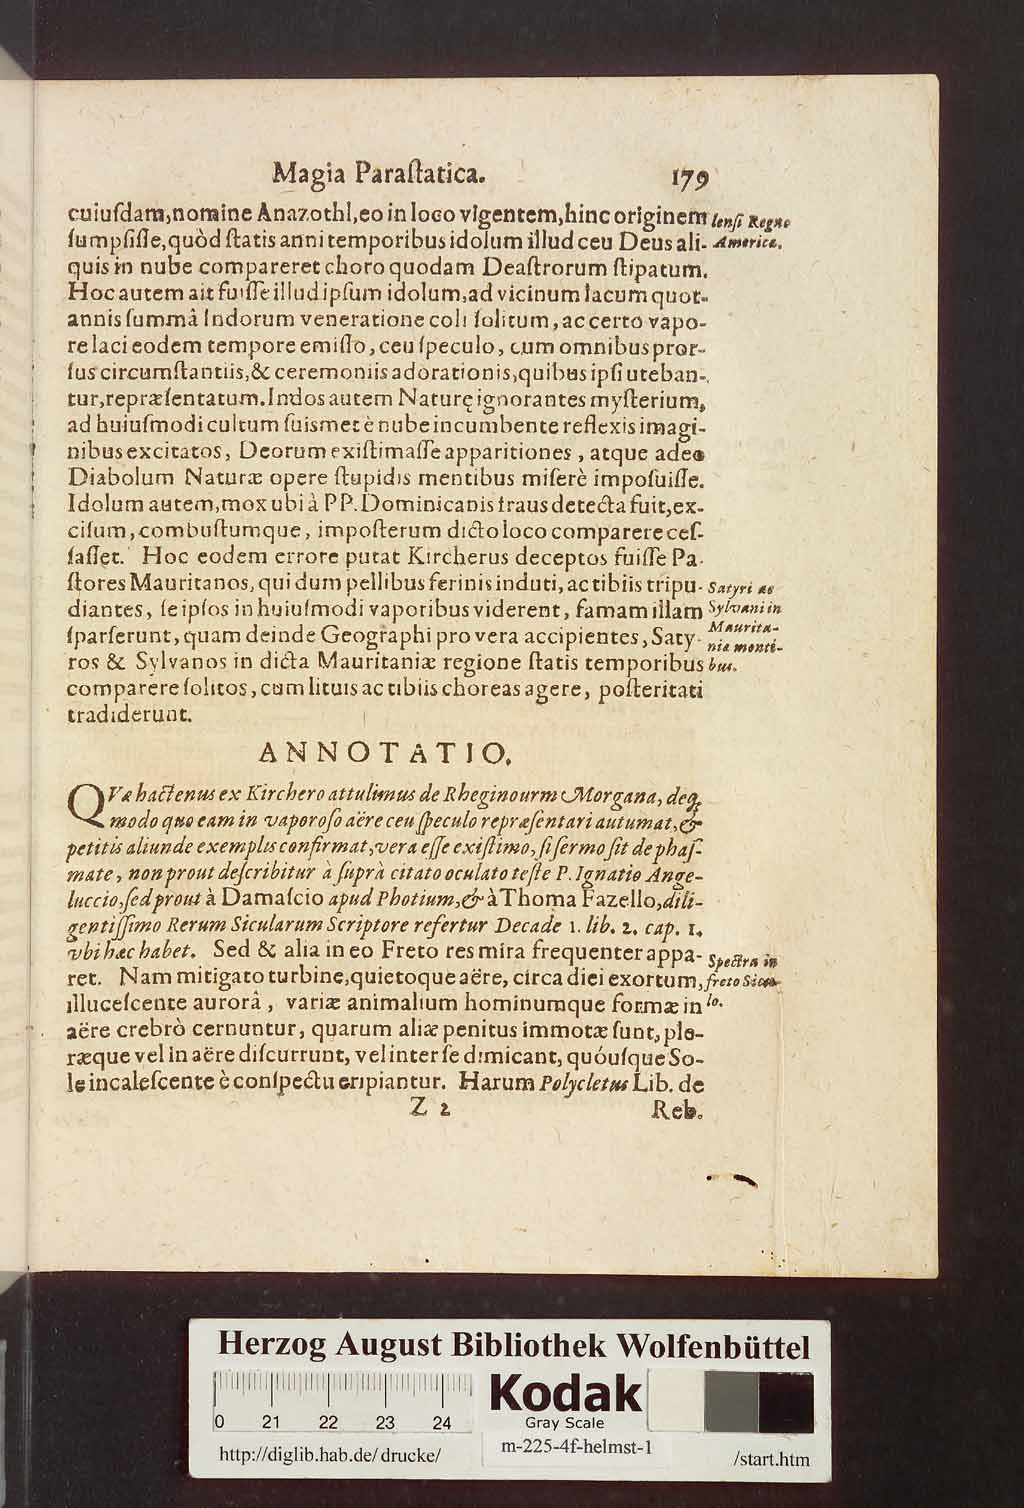 Magia Paraſtatica. 179
cuiuſdam, nomine Anazothl, eo in loco vigentem, hinc originem
ſumpſiſſe, quòd ſtatis anni temporibus idolum illud ceu Deus ali-
quis in nube compareret choro quodam Deaſtrorum ſtipatum.
Hoc autem ait fuiſſe illud ipſum idolum, ad vicinum lacum quot-
annis ſummâ Indorum veneratione coli ſolitum, ac certo vapo-
re laci eodem tempore emiſſo, ceu ſpeculo, cum omnibus pror-
ſus circumſtantiis, & ceremoniis adorationis, quibus ipſi uteban-
tur, repræſentatum. Indos autem Naturę ignorantes myſterium,
ad huiuſmodi cultum ſuismet è nube incumbente reflexis imagi-
nibus excitatos, Deorum exiſtimaſſe apparitiones, atque adeo
Diabolum Naturæ opere ſtupidis mentibus miſerè impoſuiſſe.
Idolum autem, mox ubi à PP. Dominicanis fraus detecta fuit, ex-
ciſum, combuſtumque, impoſterum dicto loco comparere ceſ-
ſaſſet. Hoc eodem errore putat Kircherus deceptos fuiſſe Pa-
ſtores Mauritanos, qui dum pellibus ferinis induti, ac tibiis tripu-
diantes, ſe ipſos in huiuſmodi vaporibus viderent, famam illam
ſparſerunt, quam deinde Geographi pro vera accipientes, Saty-
ros & Sylvanos in dicta Mauritaniæ regione ſtatis temporibus
comparere ſolitos, cum lituis ac tibiis choreas agere, poſteritati
tradiderunt.
lenſi Regno
America.
Satyri ac
Sylvani in
Maurita-
niæ monti-
bus.
ANNOTATIO.
QVæ hactenus ex Kirchero attulimus de Rheginorum Morgana, deq;
modo quo eam in vaporoſo aëre ceu ſpeculo repræſentari autumat, &
petitis aliunde exemplis confirmat, vera eſſe exiſtimo, ſi ſermo ſit de phaſ-
mate, non prout deſcribitur à ſuprà citato oculato teſte P. Ignatio Ange-
luccio, ſed prout à Damaſcio apud Photium, & à Thoma Fazello, dili-
gentiſſimo Rerum Sicularum Scriptore refertur Decade 1. lib. 2. cap. 1.
vbi hæc habet. Sed & alia in eo Freto res mira frequenter appa-
ret. Nam mitigato turbine, quietoque aëre, circa diei exortum,
illuceſcente aurorâ, variæ animalium hominumque formæ in
aëre crebrò cernuntur, quarum aliæ penitus immotæ ſunt, ple-
ræque vel in aëre diſcurrunt, vel inter ſe dimicant, quóuſque So-
le incaleſcente è conſpectu eripiantur. Harum Polycletus Lib. de
Spectra in
freto Sicu-
lo.
Z 2 Reb.
Herzog August Bibliothek Wolfenbüttel
Kodak
Gray Scale
0 21 22 23 24
m-225-4f-helmst-1
http://diglib.hab.de/drucke/ /start.htm